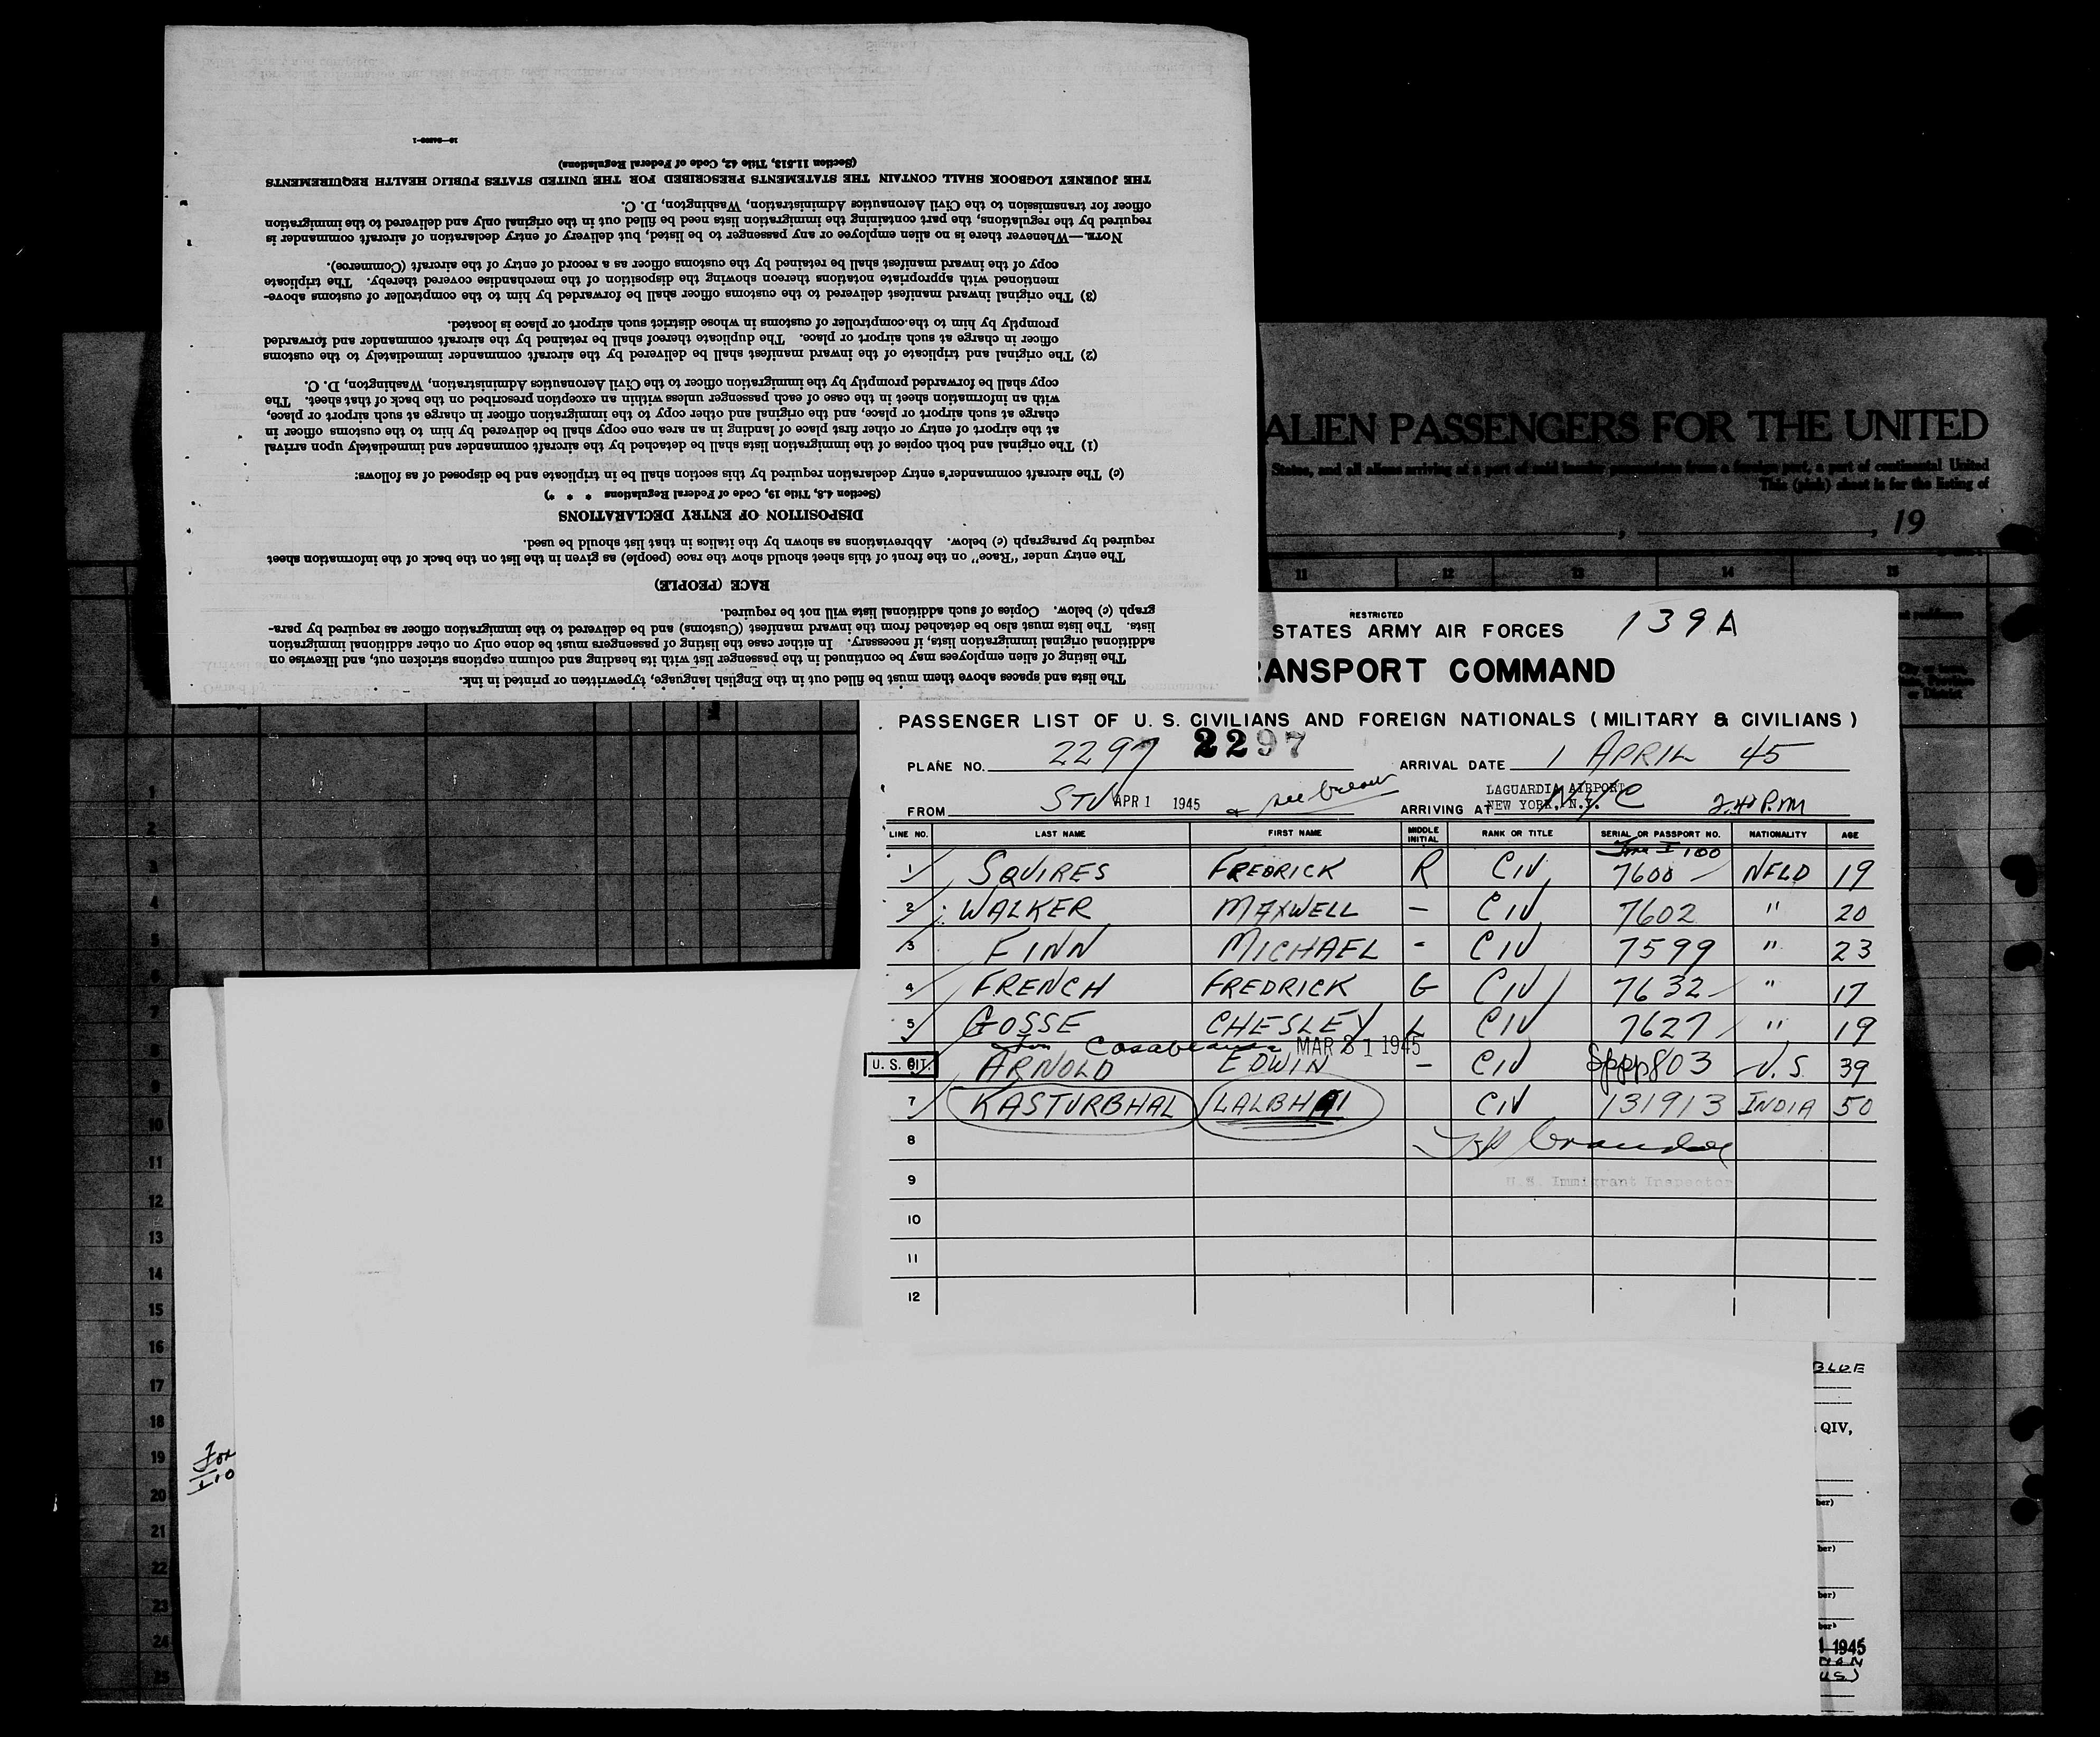 The lists and spaces above them must be filled out in the English language, typewritten or printed in ink.
The listing of alien employees may be continued in the passenger list with its heading and column captions stricken out, and likewise on
additional original immigration lists, if necessary. In either case the listing of passengers must be done only on other additional immigration
lists. The lists must also be detached from the inward manifest (Customs) and be delivered to the immigration officer as required by para-
graph (c) below. Copies of such additional lists will not be required.
RACE (PEOPLE)
The entry under "Race" on the front of this sheet should show the race (people) as given in the list on the back of the information sheet
required by paragraph (c) below. Abbreviations as shown by the italics in that list should be used.
DISPOSITION OF ENTRY DECLARATIONS
(Section 4.8, Title 19, Code of Federal Regulations * * *)
(c) The aircraft commander's entry declaration required by this section shall be in triplicate and be disposed of as follows:
(1) The original and both copies of the immigration lists shall be detached by the aircraft commander and immediately upon arrival
at the airport of entry or other first place of landing in an area one copy shall be delivered by him to the customs officer in
charge at such airport or place, and the original and other copy to the immigration officer in charge at such airport or place,
with an information sheet in the case of each passenger unless within an exception prescribed on the back of that sheet. The
copy shall be forwarded promptly by the immigration officer to the Civil Aeronautics Administration, Washington, D. C.
(2) The original and triplicate of the inward manifest shall be delivered by the aircraft commander immediately to the customs
officer in charge at such airport or place. The duplicate thereof shall be retained by the aircraft commander and forwarded
promptly by him to the comptroller of customs in whose district such airport or place is located.
(3) The original inward manifest delivered to the customs officer shall be forwarded by him to the comptroller of customs above-
mentioned with appropriate notations thereon showing the disposition of the merchandise covered thereby. The triplicate
copy of the inward manifest shall be retained by the customs officer as a record of entry of the aircraft (Commerce).
NOTE.—Whenever there is no alien employee or any passenger to be listed, but delivery of entry declaration of aircraft commander is
required by the regulations, the part containing the immigration lists need be filled out in the original only and delivered to the immigration
officer for transmission to the Civil Aeronautics Administration, Washington, D. C.
THE JOURNEY LOGBOOK SHALL CONTAIN THE STATEMENTS PRESCRIBED FOR THE UNITED STATES PUBLIC HEALTH REQUIREMENTS
(Section 11.513, Title 42, Code of Federal Regulations)
ALIEN PASSENGERS FOR THE UNITED
States, and all aliens arriving at a port of said
a foreign port, a port of continental United
This (pink) sheet is for the listing of
, 19
11 12 13 14 15
RESTRICTED
STATES ARMY AIR FORCES 139A
RANSPORT COMMAND
PASSENGER LIST OF U. S. CIVILIANS AND FOREIGN NATIONALS (MILITARY & CIVILIANS)
PLANE NO. 2297 2297 ARRIVAL DATE 1 APRIL 45
FROM STV APR 1 1945 & see below ARRIVING AT NYC LAGUARDIA AIRPORT NEW YORK, N.Y. 2:40 P.M
LINE NO. LAST NAME FIRST NAME MIDDLE INITIAL RANK OR TITLE SERIAL OR PASSPORT NO. NATIONALITY AGE
1 SQUIRES FREDRICK R CIV 7600 NFLD 19
2 WALKER MAXWELL - CIV 7602 " 20
3 FINN MICHAEL - CIV 7599 " 23
4 FRENCH FREDRICK G CIV 7632 " 17
5 GOSSE CHESLEY L CIV 7627 " 19
from Casablanca MAR 31 1945
U. S. CIT. 6 ARNOLD EDWIN - CIV 803 U.S. 39
7 KASTURBHAL LALBHAI CIV 131913 INDIA 50
8
U.S. Immigrant Inspector
9
10
11
12
1
2
3
4
5
6
7
8
9
10
11
12
13
14
15
16
17
18
19
20
21
22
23
24
25
BLUE
QIV,
ber)
ber)
ber)
1 1945
US)